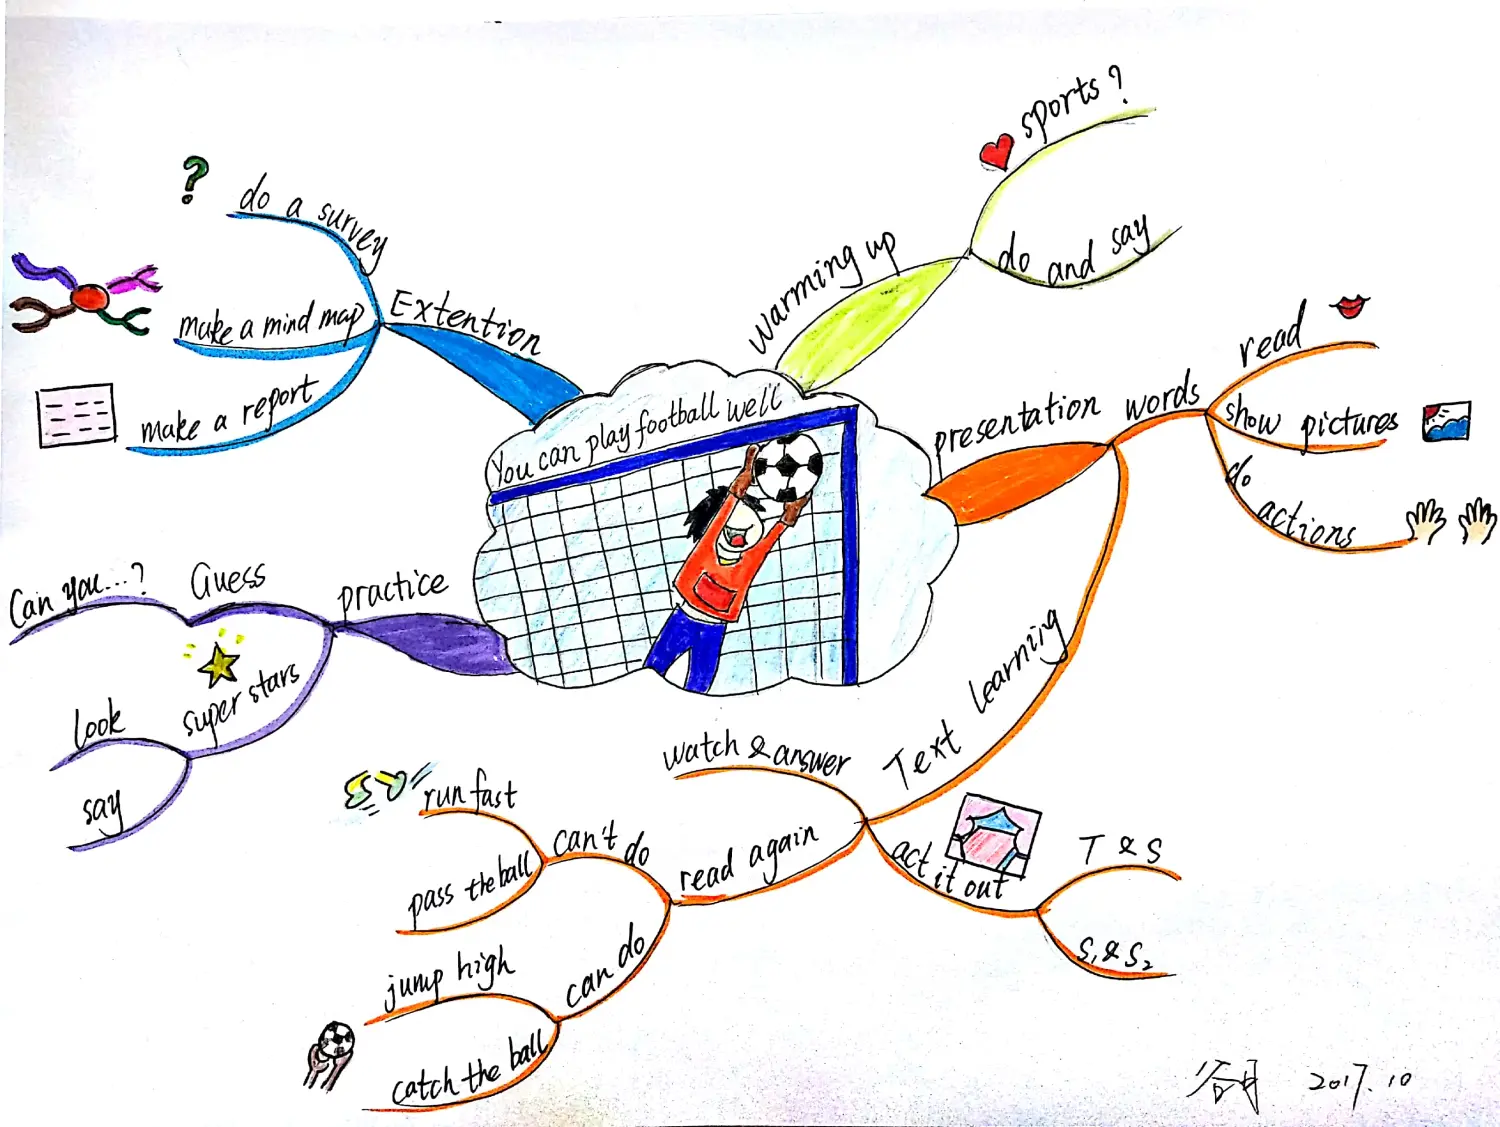 You can play football well
warming up
sports?
do and say
presentation
words
read
show pictures
do actions
Text learning
watch & answer
read again
can't do
run fast
pass the ball
can do
jump high
catch the ball
act it out
T & S
S₁ & S₂
practice
Guess
Can you...?
super stars
look
say
Extention
do a survey
make a mind map
make a report
谷月 2017.10